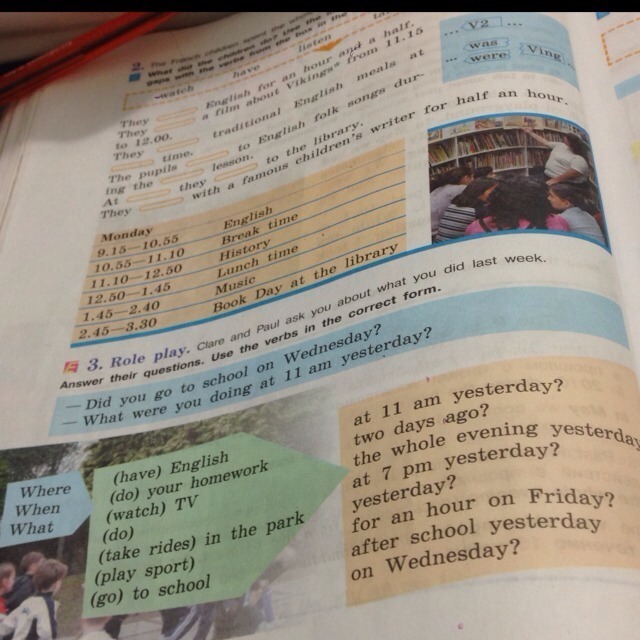 2. The French children spent the
What did the children do? Use the
gaps with the verbs from the box in the
watch have listen
... V2 ...
... was Ving
... were
They English for an hour and a half.
They a film about Vikings* from 11.15
to 12.00.
They traditional English meals at
time.
The pupils to English folk songs dur-
ing the lesson.
At they to the library.
They with a famous children's writer for half an hour.
Monday
9.15—10.55 English
10.55—11.10 Break time
11.10—12.50 History
12.50—1.45 Lunch time
1.45—2.40 Music
2.45—3.30 Book Day at the library
3. Role play. Clare and Paul ask you about what you did last week.
Answer their questions. Use the verbs in the correct form.
— Did you go to school on Wednesday?
— What were you doing at 11 am yesterday?
Where
When
What
(have) English
(do) your homework
(watch) TV
(do)
(take rides) in the park
(play sport)
(go) to school
at 11 am yesterday?
two days ago?
the whole evening yesterday
at 7 pm yesterday?
yesterday?
for an hour on Friday?
after school yesterday
on Wednesday?